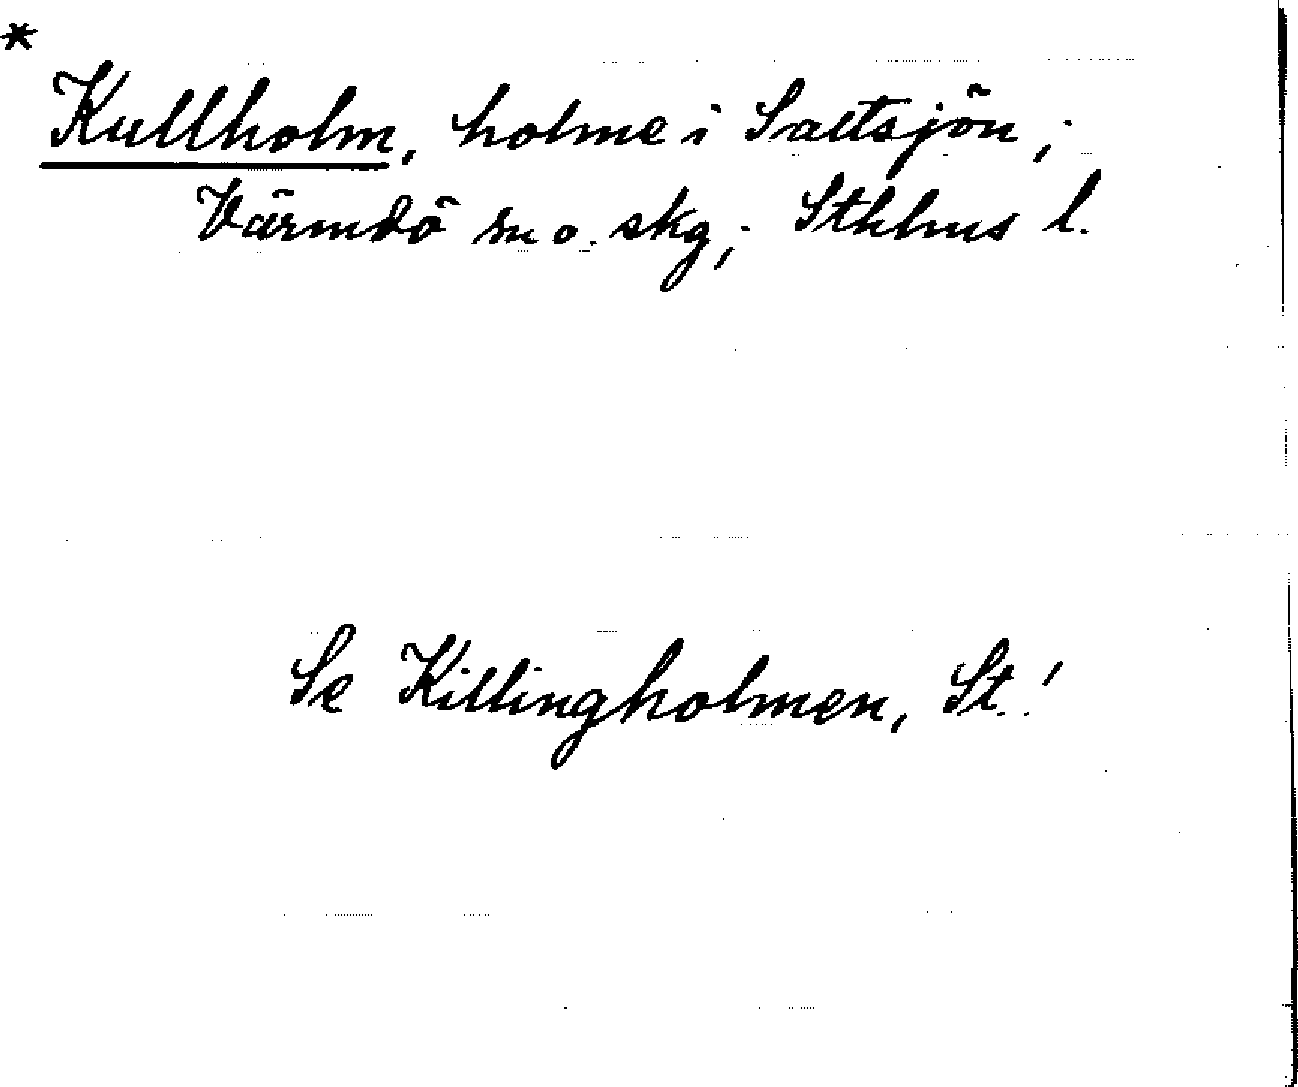 *
Kullholm, holme i Saltsjön;
Värmdö sn o. skg; Sthlms l.
Se Killingholmen, St.!